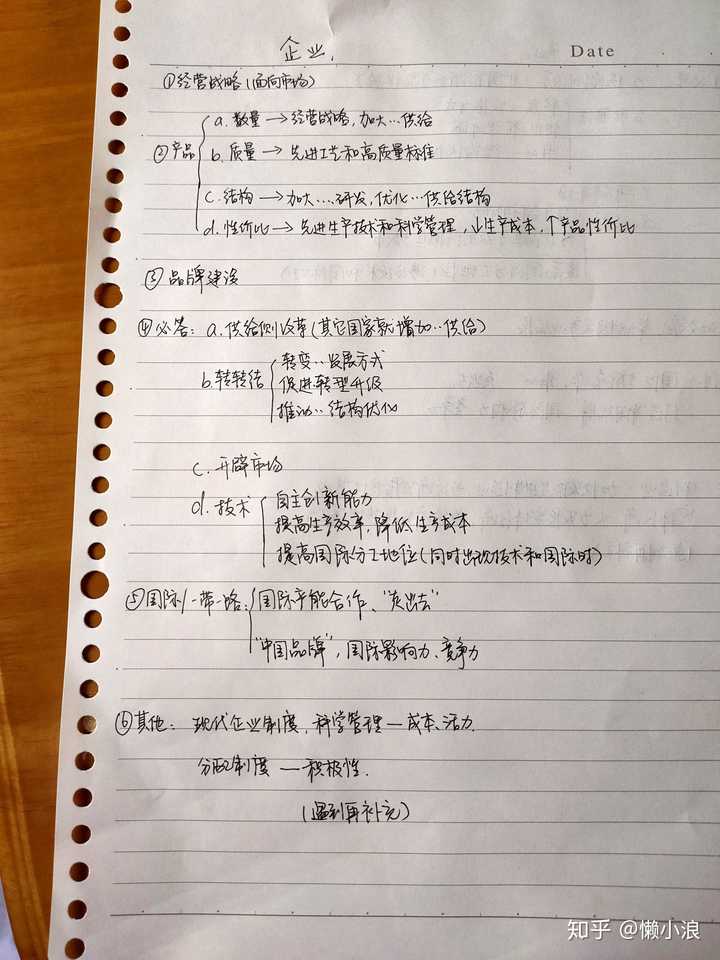 企业.
Date
①经营战略(面向市场)
②产品
a.数量→经营战略,加大…供给
b.质量→先进工艺和高质量标准
c.结构→加大…研发,优化…供给结构
d.性价比→先进生产技术和科学管理,↓生产成本,↑产品性价比
③品牌建设
④必答:a.供给侧改革(其它国家就增加…供给)
b.转转结
转变…发展方式
促进转型升级
推动…结构优化
c.开辟市场
d.技术
自主创新能力
提高生产效率,降低生产成本
提高国际分工地位(同时出现技术和国际时)
⑤国际/一带一路:
国际产能合作、"走出去"
"中国品牌",国际影响力、竞争力
⑥其他:现代企业制度,科学管理—成本、活力.
分配制度—积极性.
(遇到再补充)
知乎 @懒小浪